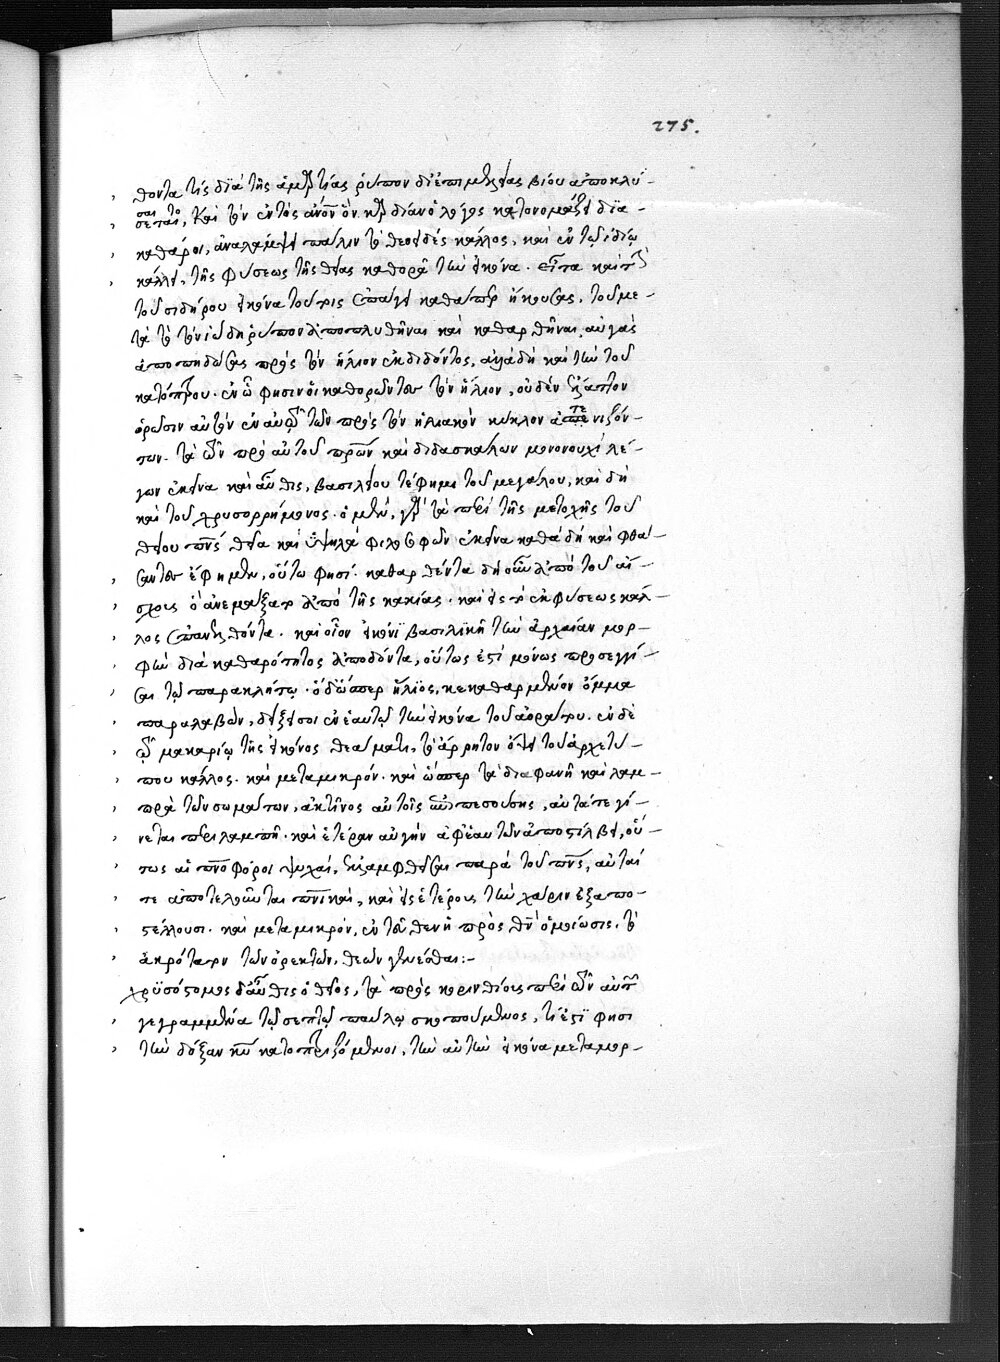 275.
θοντα τίς διὰ τῆς ἁμρτίας ῥύπον δι' ἐπιμελείας βίου ἀποκλύ-
σεται, σαι το καὶ τὸν ἐντὸς ἀνον ὃν κ διάνο λόγος κατονομάζει δϊα-
καθάροι, ἀναλάμψει πάλιν τὸ θεοειδὲς κάλλος, καὶ ἐν τῷ ἰδίῳ
κάλλει, τῆς φύσεως τῆς θείας καθορᾶ τὴν εἰκόνα. εἶτα καὶ
τοῦ σιδήρου εἰκόνα τοῦ τρις ἐπάγει καθάπερ ἤκουσας, τοῦ με-
τὰ τὸ τὸν ἰώδη ῥύπον ἀποπλυθῆναι καὶ καθαρθῆναι, αὐγὰς
ἀποπηδώσας πρὸς τὸν ἥλιον ἐκδιδόντος, ἀλλὰ δὴ καὶ τὴν τοῦ
κατόπτρου. ἐν ᾧ φησιν οἱ καθορῶντες τὸν ἥλιον, οὐδὲν ἔλαττον
ὁρῶσιν αὐτὸν ἐν αὐτῷ τῶν πρὸς τὸν ἡλιακὸν κύκλον ἀτενιζόν-
των. τὰ ὧν πρὸ αὐτοῦ πρων καὶ διδασκάλων μονονουχὶ λέ-
γων ἐκεῖνα καὶ αὖθις, βασιλείου τέ φημι τοῦ μεγάλου, καὶ δὴ
καὶ τοῦ χρυσορρήμονος. ὁ μὲν, γὰρ τὰ περὶ τῆς μετοχῆς τοῦ
θείου πνς θεῖα καὶ ὑψηλὰ φιλοσοφῶν ἐκεῖνα καθὰ δὴ καὶ φθά-
σαντες ἔφημεν, οὕτω φησί. καθαρθέντα δὴ οὖν ἀπὸ τοῦ αἴ-
σχους ὃ ἀνεμάξατο ἀπὸ τῆς κακίας. καὶ εἰς τὸ ἐκ φύσεως κάλ-
λος ἐπανελθόντα. καὶ οἷον εἰκόνϊ βασιλϊκῆ τὴν ἀρχαίαν μορ-
φὴν διὰ καθαρότητος ἀποδόντα, οὕτως ἐστὶ μόνως προσεγγί-
σαι τῷ παρακλήτῳ. ὁ δ' ὥσπερ ἥλϊος, κεκαθαρμένον ὄμμα
παραλαβὼν, δείξει σοι ἐν ἑαυτῷ τὴν εἰκόνα τοῦ ἀοράτου. ἐν δὲ
ᾧ μακαρίῳ τῆς εἰκόνος θεάματι, τὸ ἄρρητον ὄψει τοῦ ἀρχετύ-
που κάλλος. καὶ μεταμικρόν. καὶ ὥσπερ τὰ διαφανῆ καὶ λαμ-
πρὰ τῶν σωμάτων, ἀκτῖνος αὐτοῖς ἐμπεσούσης, αὐτά τε γί-
νεται περιλαμπῆ. καὶ ἑτέραν αὐγὴν ἀφ' ἑαυτῶν ἀποστίλβει, οὕ-
τως αἱ πνοφόροι ψυχαί, ἐλλαμφθεῖσαι παρὰ τοῦ πνς, αὐταί
τε ἀποτελοῦνται πνικαὶ, καὶ εἰς ἑτέρους τὴν χάριν ἐξαπο-
στέλλουσι. καὶ μεταμικρόν, ἐντεῦθεν ἡ πρὸς θν ὁμοίωσις. τὸ
ἀκρότατον τῶν ὀρεκτῶν, θεὸν γενέσθαι:-
χρϋσόστομος δ' αὖθις ὁ θεῖος, τὰ πρὸς κορινθίους περὶ ὧν αὐτ
γεγραμμένα τῷ σεπτῷ παύλῳ σκοπούμενος, τί ἐστϊ φησι
τὴν δόξαν κυ κατοπτριζόμενοι, τὴν αὐτὴν εἰκόνα μεταμορ-